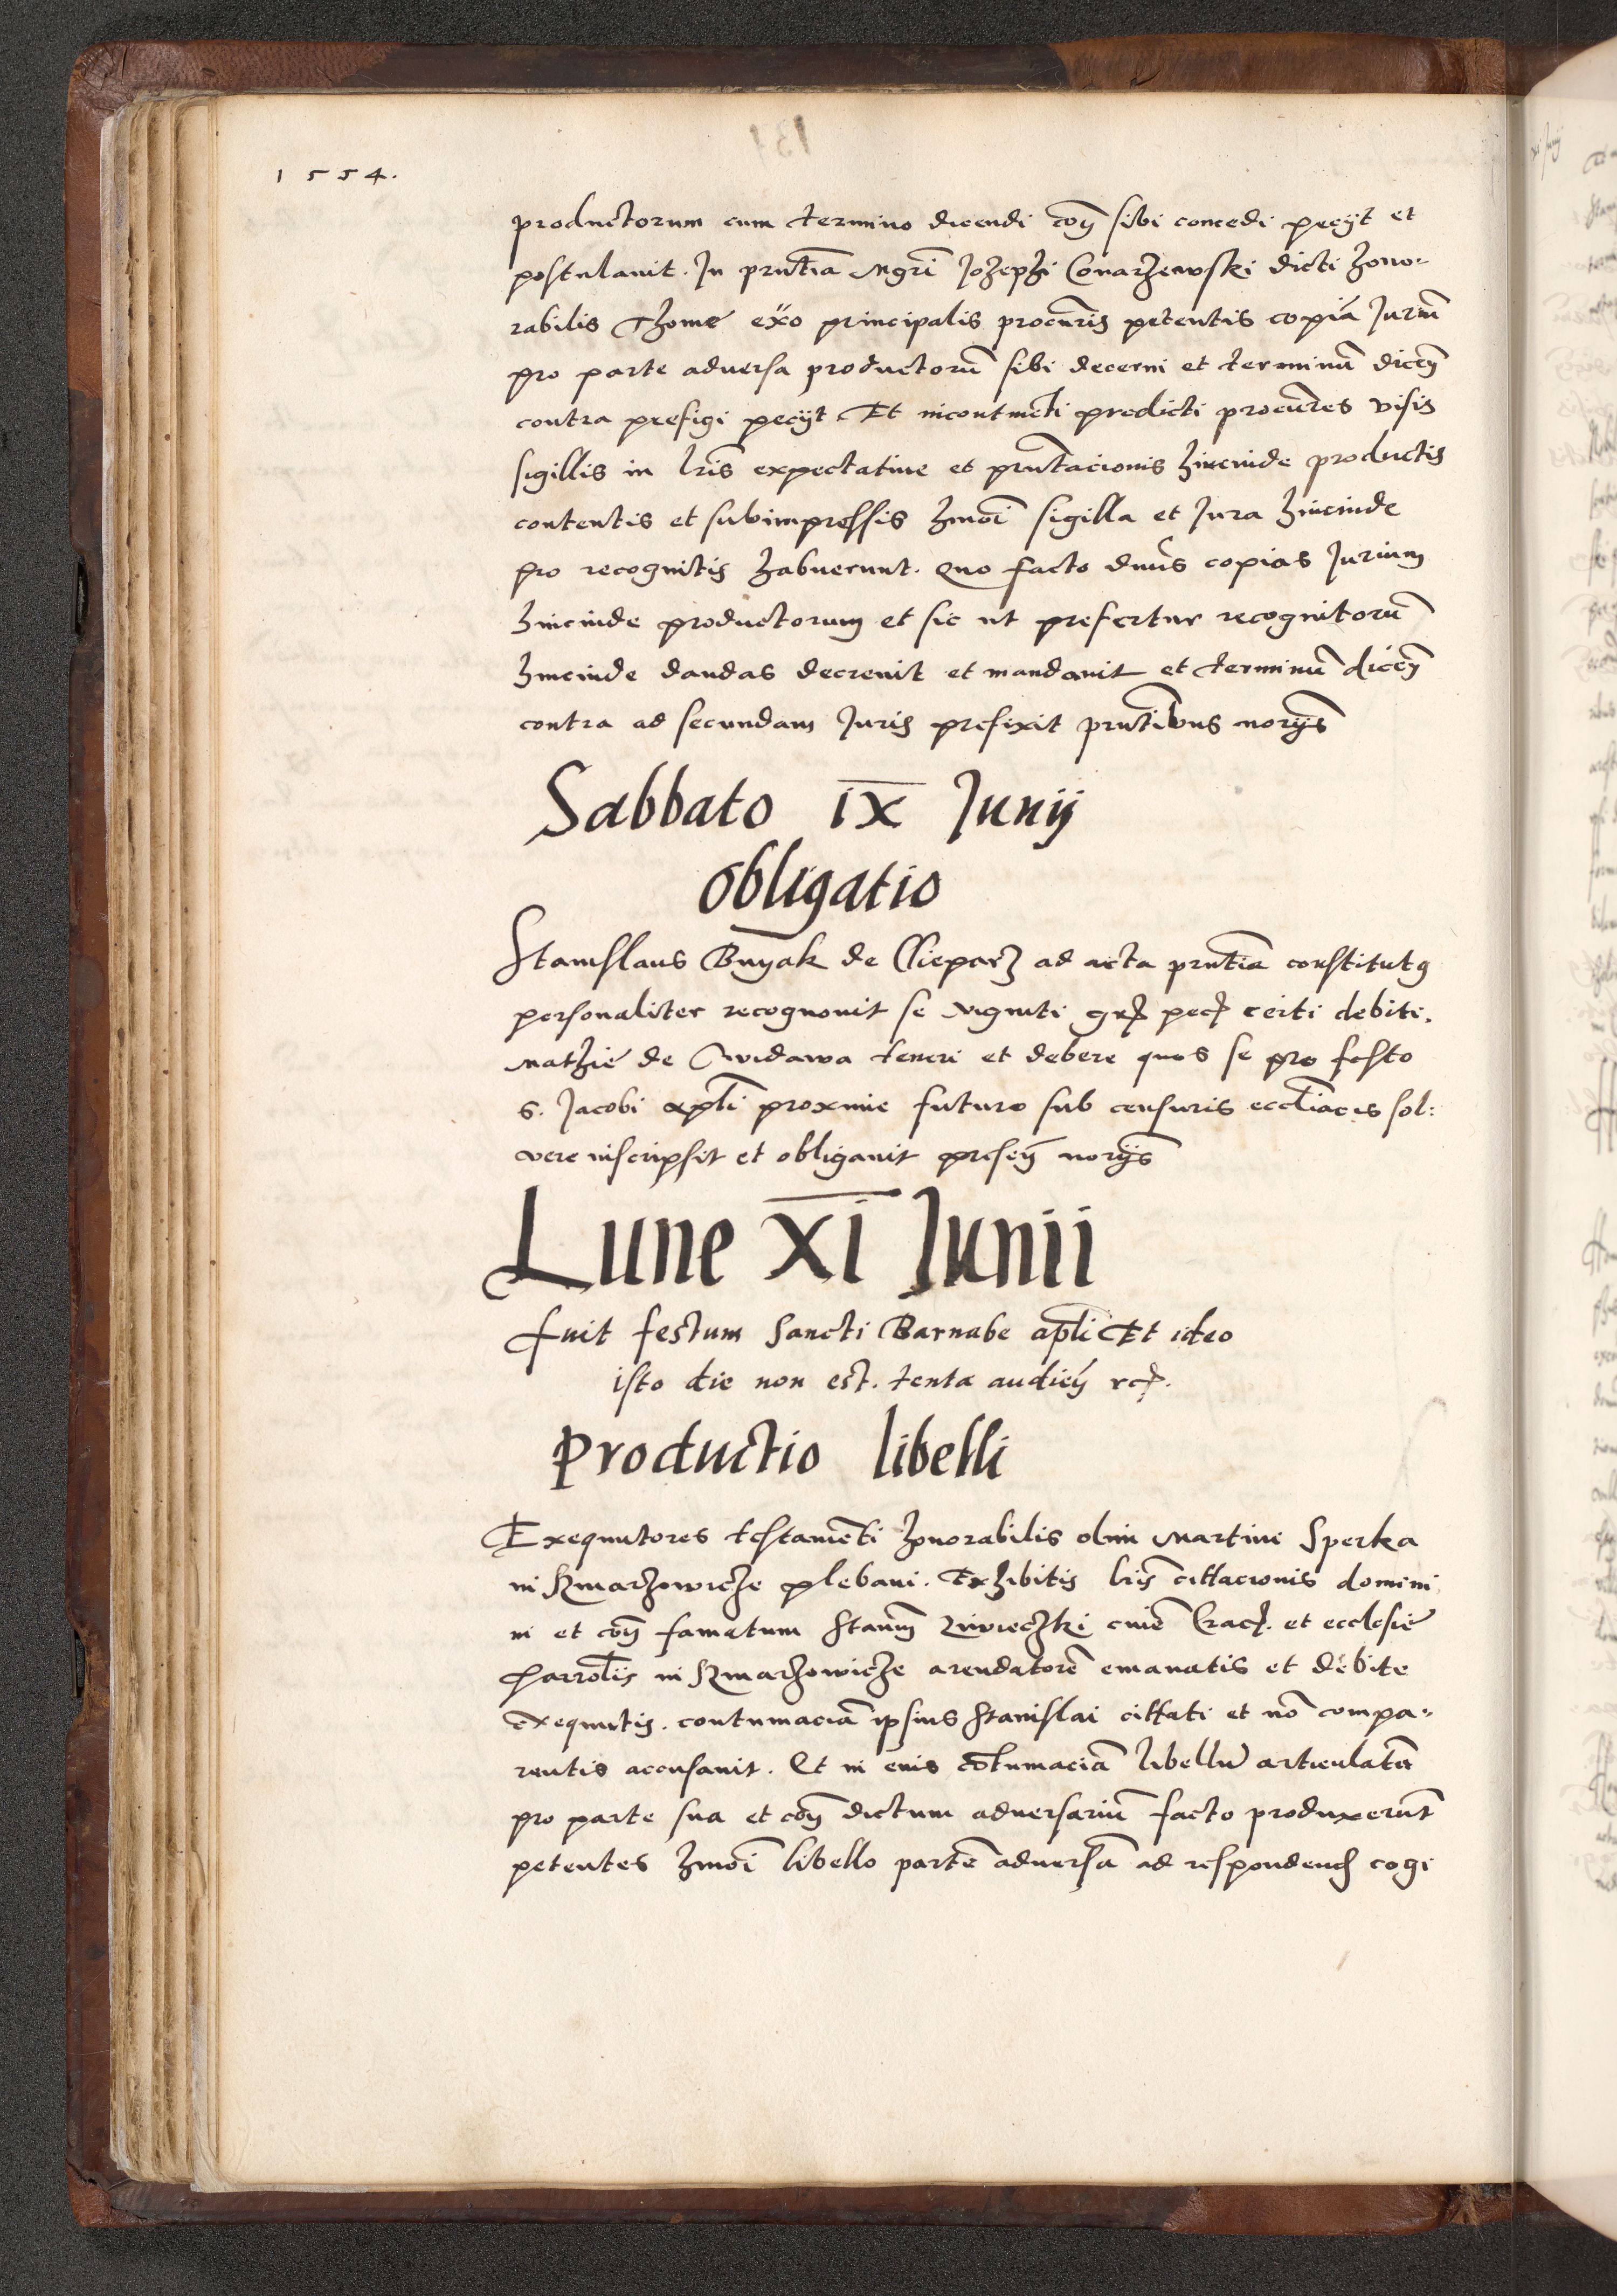 1554.
productorum cum termino dicendi coñ sibi concedi pecijt et
postulauit. In prñtia Mgri Jozephi Conarzewski dicti hono-
rabilis Thome exo principalis procuris petentis copiã Jurium
pro parte aduersa productorũ sibi decerni et terminũ diceñ
contra prefigi pecijt Et incontineñti predicti procures visis
sigillis in lris expectatiue et pñtacionis hincinde productis
contentis et subimpressis hmõi sigilla et Jura hincinde
pro recognitis habuerunt. Quo facto dnus copias Jurium
hincinde productorum et sic ut prefertur recognitorũ
hincinde dandas decreuit et mandauit et terminũ diceñ
contra ad secundam Juris prefixit pñtibus norijs
Sabbato ix Junij
obligatio
Stanislaus Buyak de Clieparz ad acta pñtia constitutus
personaliter recognouit se viginti grs pec certi debiti
Mathie de Widawa teneri et debere quos se pro festo
S. Jacobi apli proxime futuro sub censuris eccliacis sol:
vere inscripsit et obligauit preseñ norijs
Lune XI Junii
fuit festum Sancti Barnabe apli Et ideo
isto die non est. tenta audieñ rc.
Productio libelli
Exequutores testamẽti honorabilis olim Martini Sperka
in Kmarzowicze plebani. Exhibitis lris cittacionis domini
in et coñ famatum Stanm ciuẽ Crac. et ecclesie
parrolis in Kmarzowicze arendatorẽ emanatis et debite
exequutis. contumaciã ipsius Stanislai cittati et nõ compa-
rentis accusauit. Et in eius cõtumaciã libellũ articulatũ
pro parte sua et coñ dictum aduersariũ facto produxerũt
petentes hmõi libello partẽ aduersã ad respondend cogi